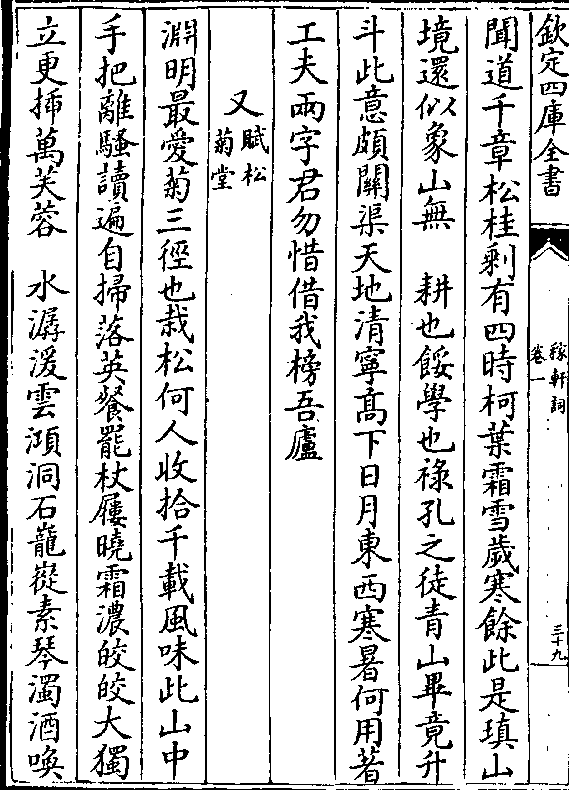 欽定四庫全書
稼軒詞
卷一
三十九
聞道千章松桂剩有四時柯葉霜雪歲寒餘此是瑱山
境還似象山無　耕也餒學也祿孔之徒青山畢竟升
斗此意頗關渠天地清寧髙下日月東西寒暑何用著
工夫兩字君勿惜借我榜吾廬
又賦松菊堂
淵明最愛菊三徑也栽松何人收拾千載風味此山中
手把離騷讀遍自掃落英餐罷杖屨曉霜濃皎皎大獨
立更揷萬芙蓉　水潺湲雲澒洞石巃嵸素琴濁酒喚